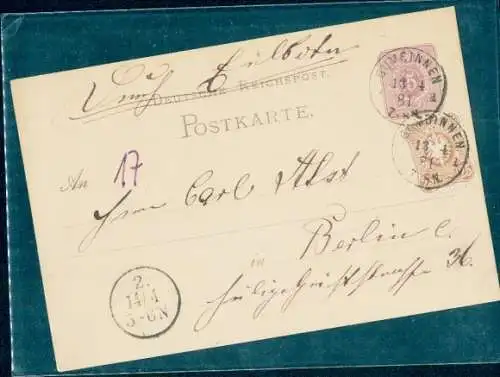 Durch Eilboten
DEUTSCHE REICHSPOST.
POSTKARTE.
GUMBINNEN
13 4
81
GUMBINNEN
13 4
An 17
Herrn Carl Alst
in Berlin C.
Heiligegeiststrasse 36.
2.
14/4
5-6N